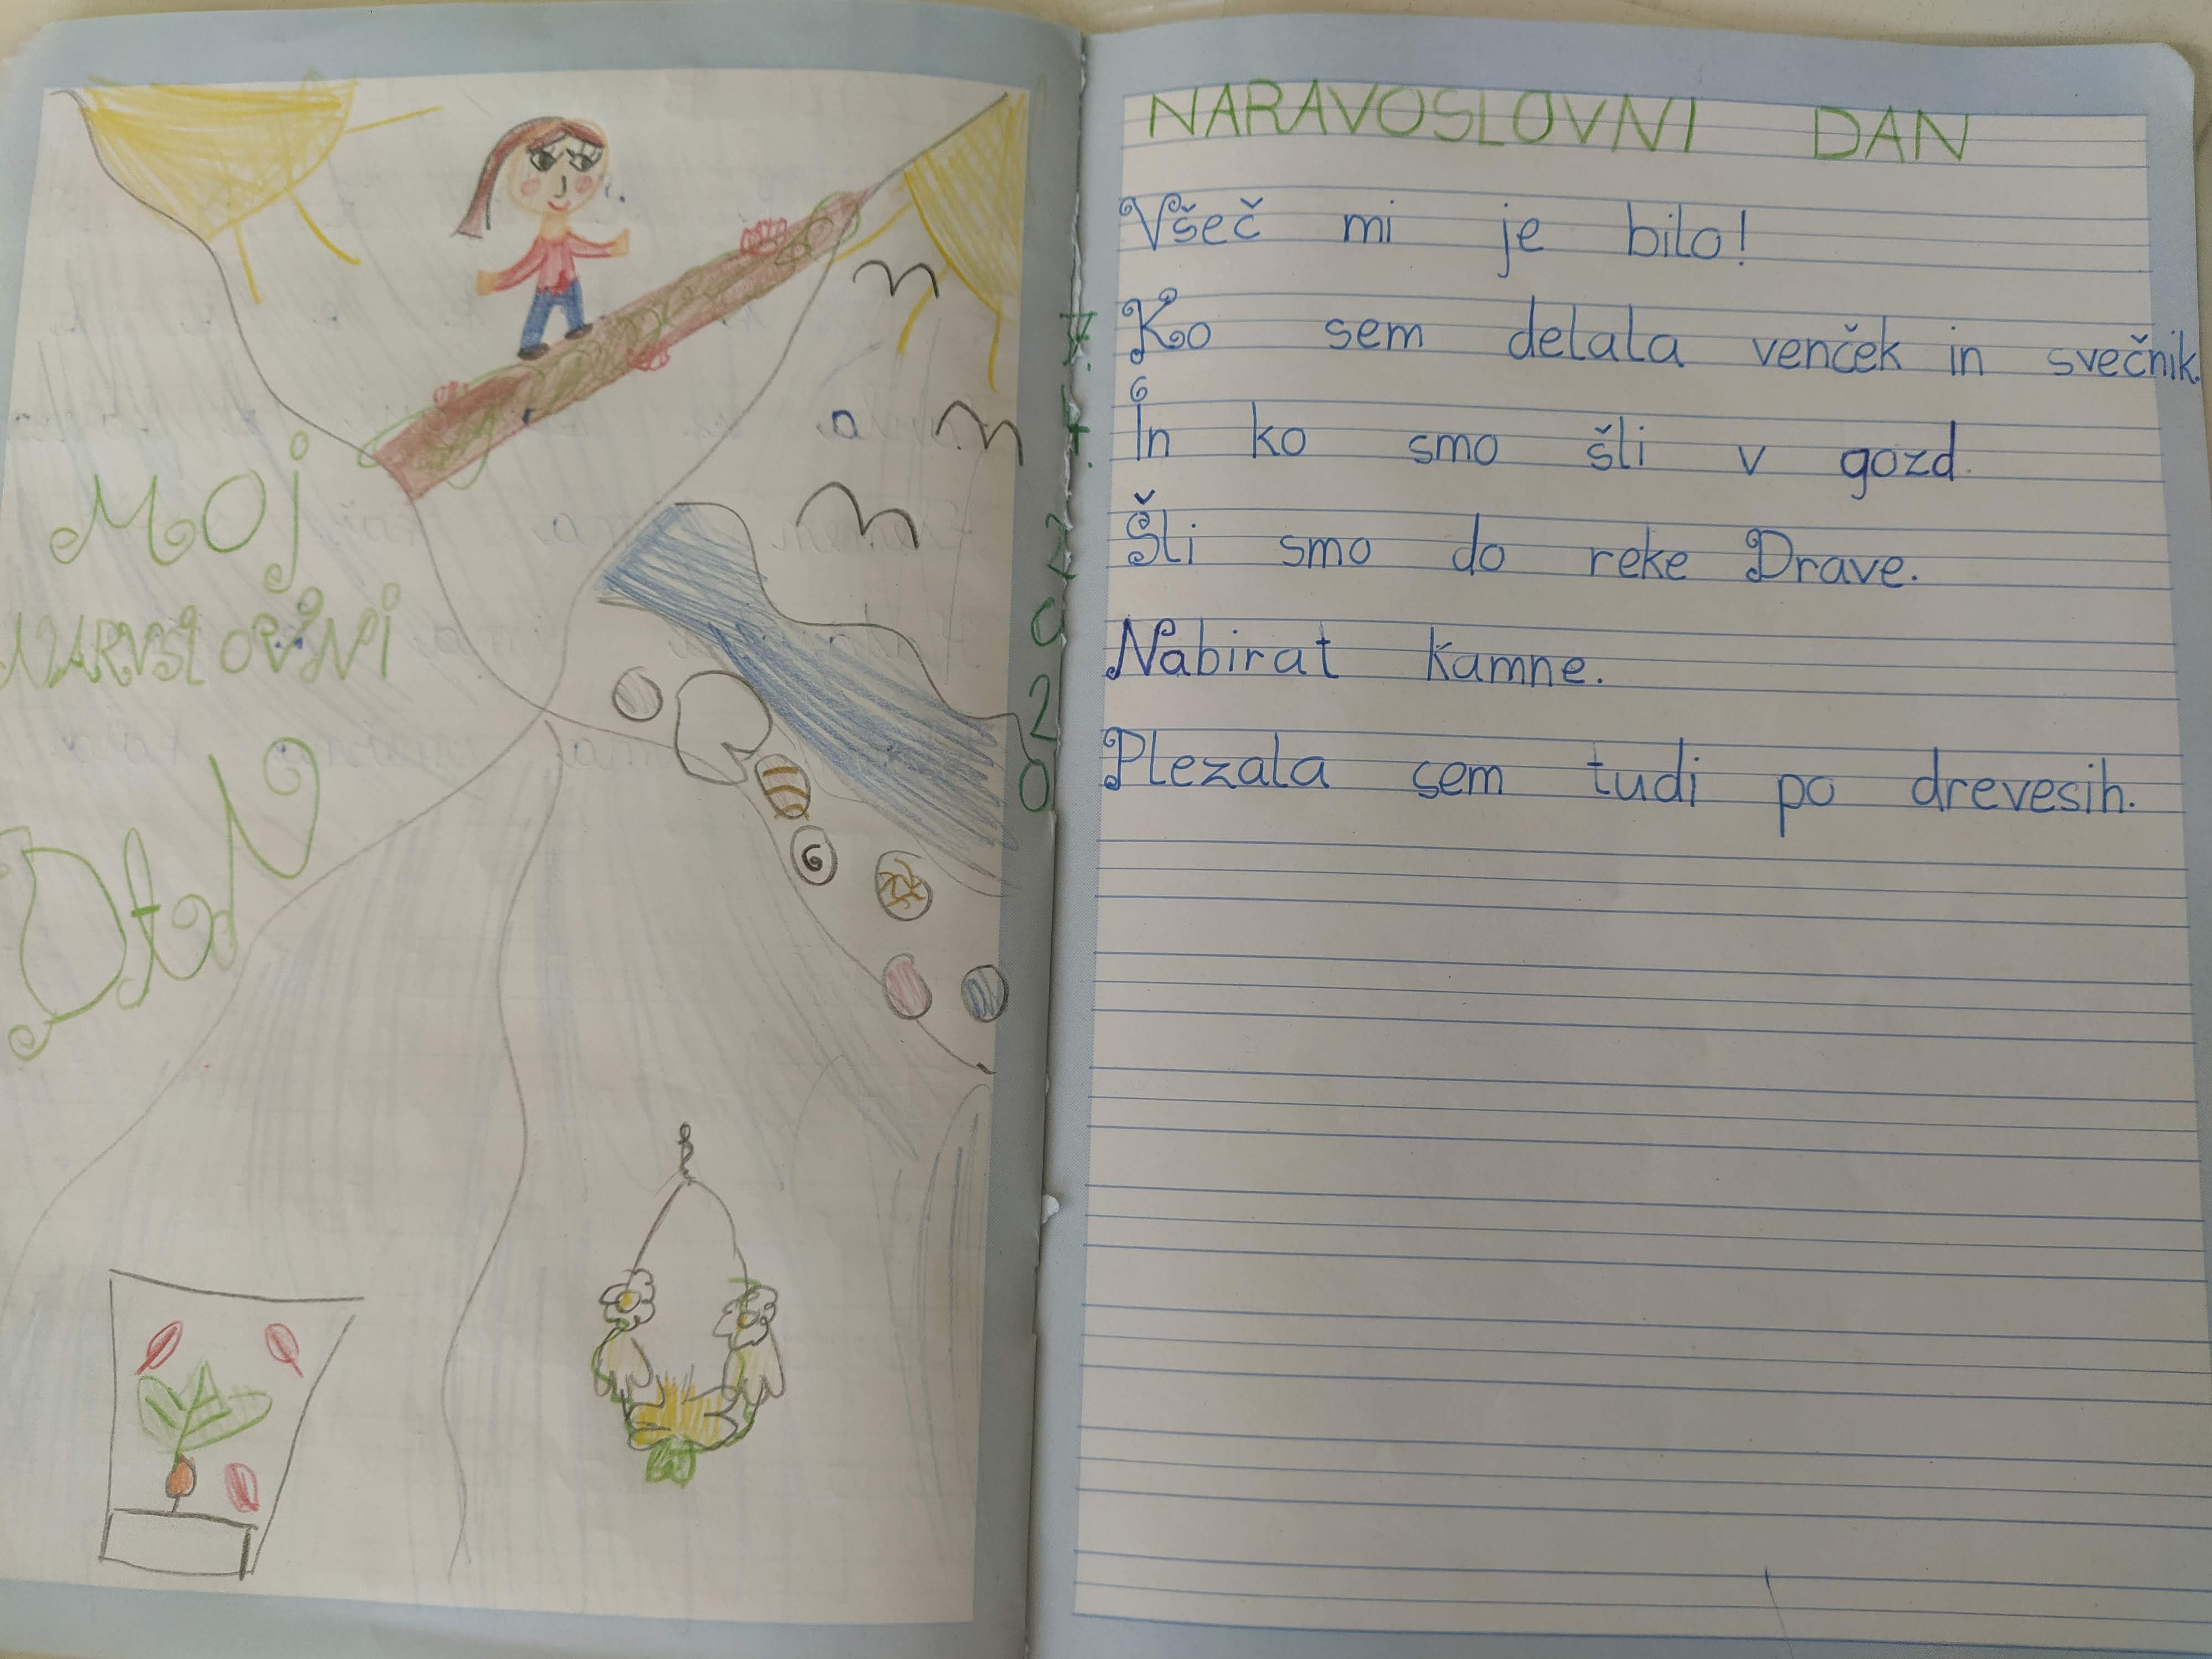 MOJ
NARVSLOVNI
DAN
NARAVOSLOVNI DAN
Všeč mi je bilo!
Ko sem delala venček in svečnik.
In ko smo šli v gozd.
Šli smo do reke Drave.
Nabirat kamne.
Plezala sem tudi po drevesih.
2
0
2
0